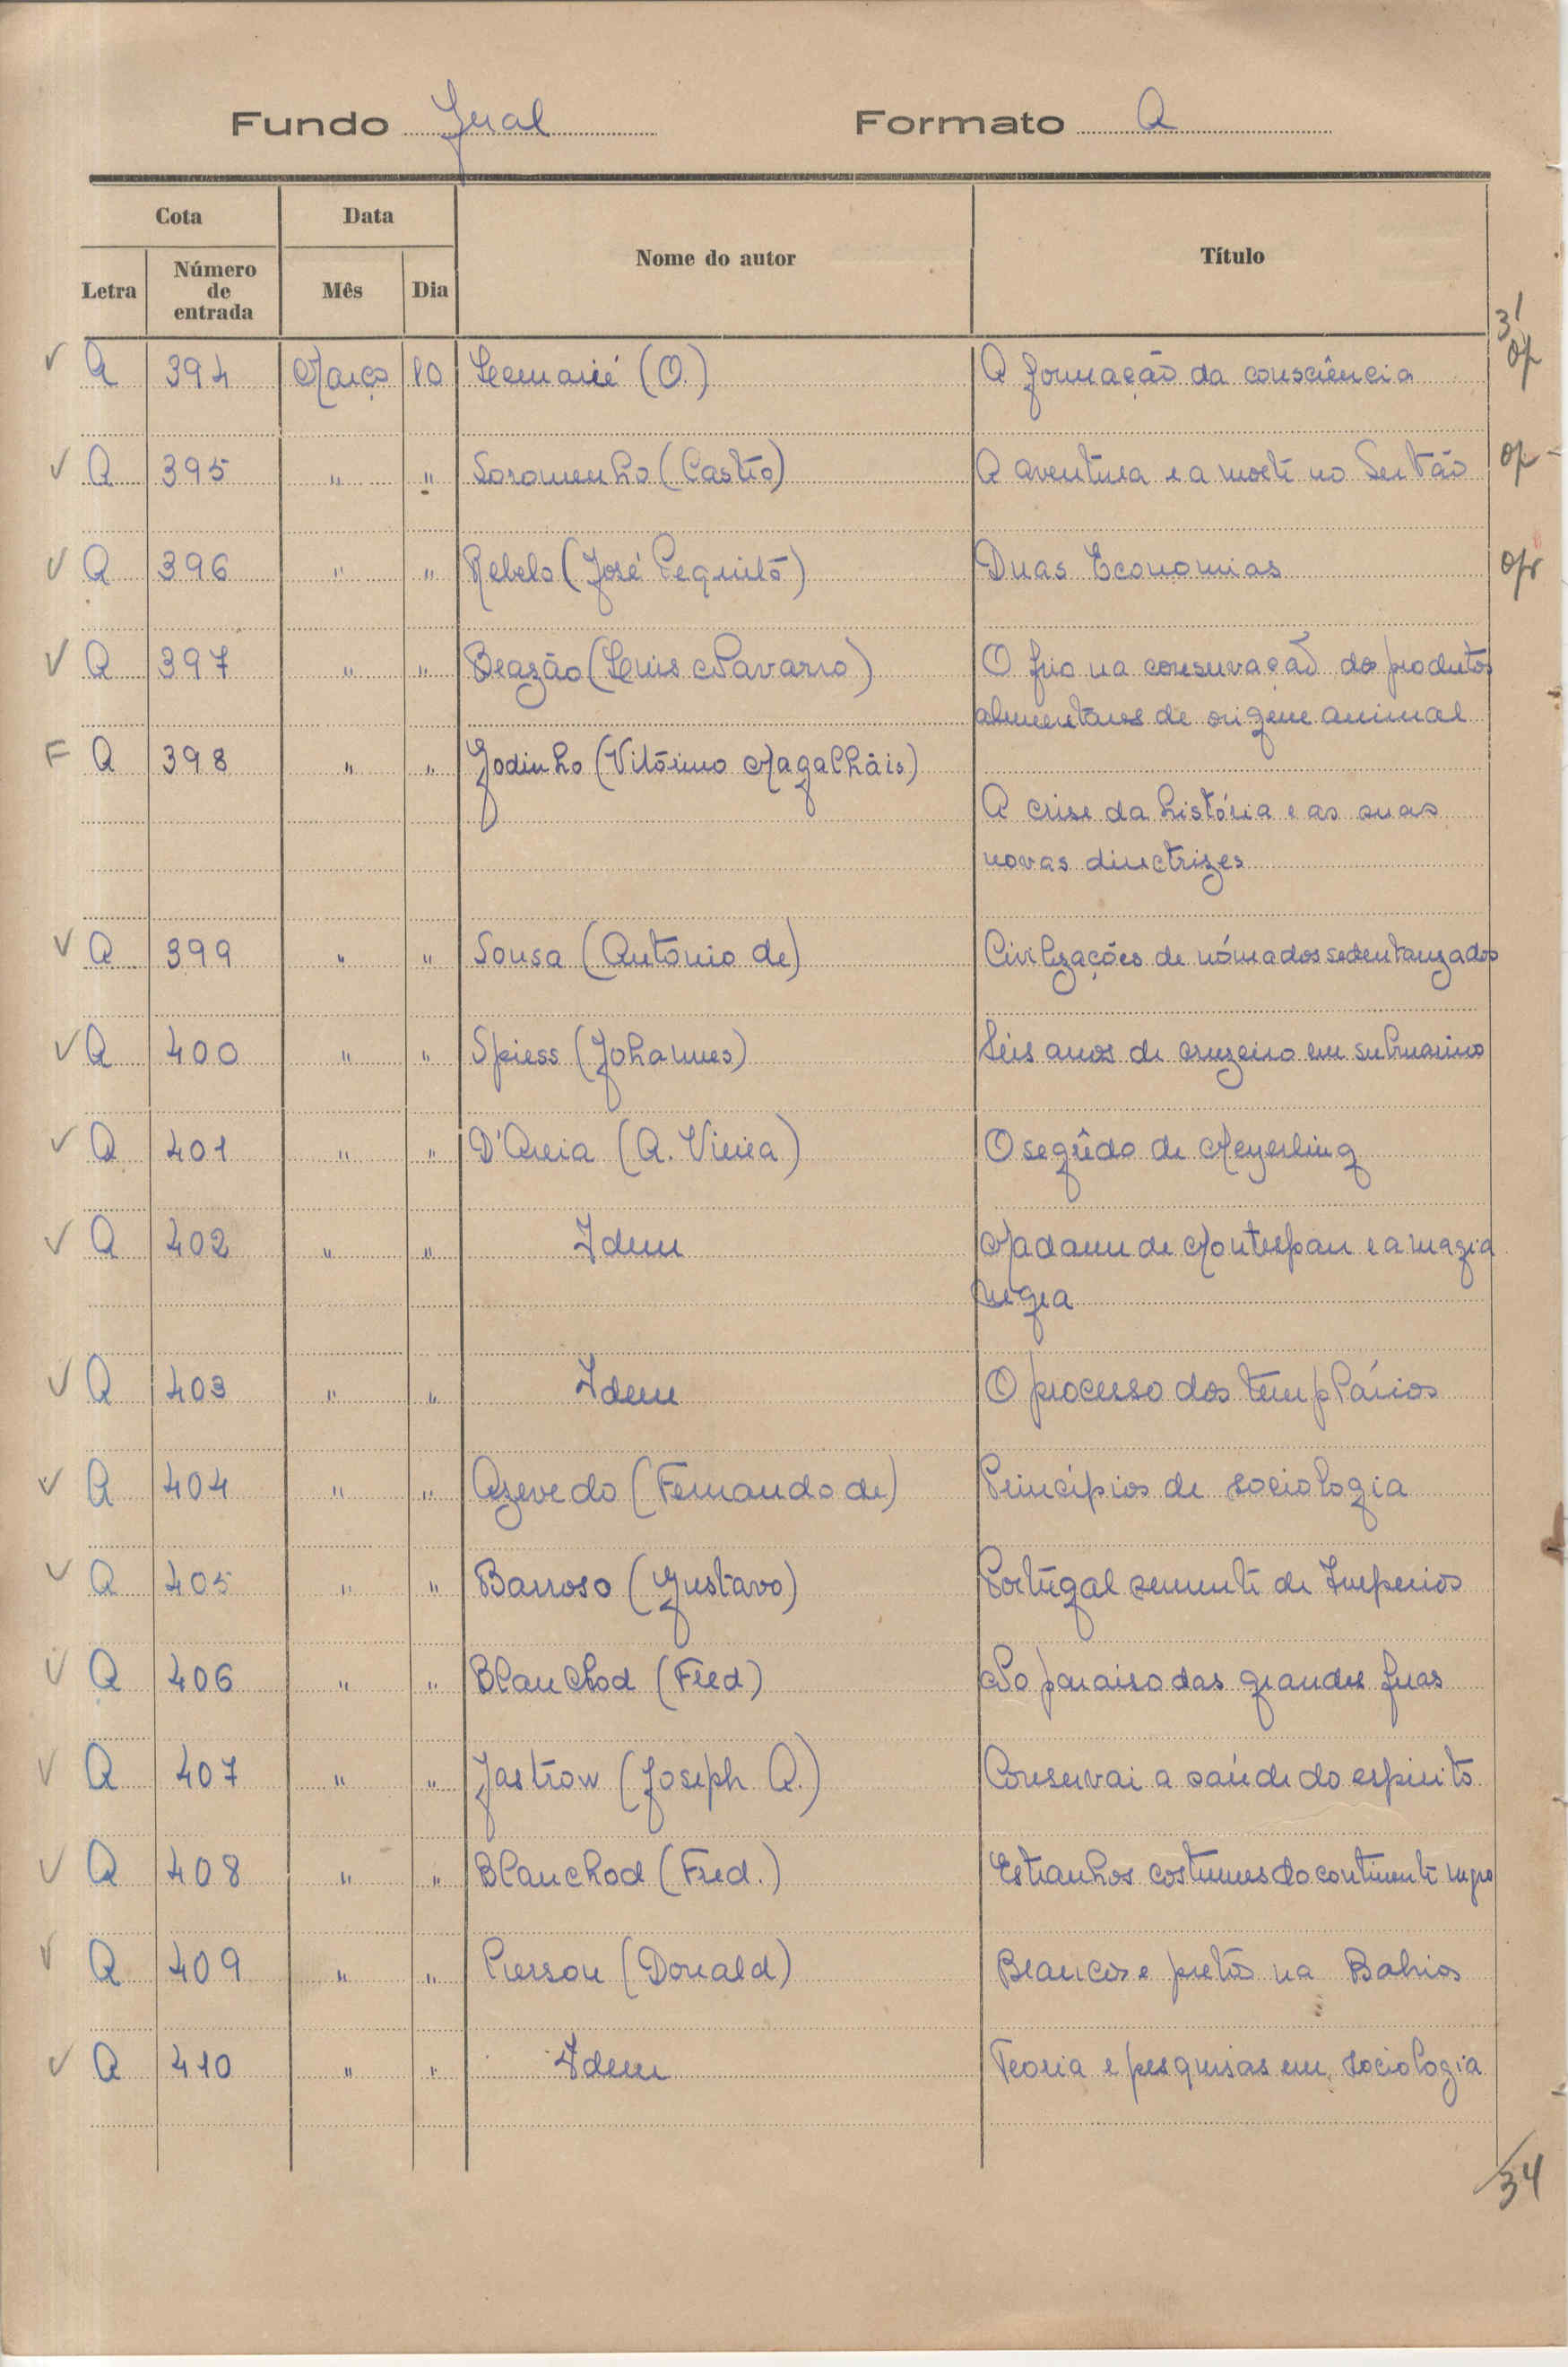 Fundo Geral Formato A
Cota Data Nome do autor Título
Letra Número de entrada Mês Dia
31
V A 394 Março 10 Lemarié (O.) A formação da consciência op
V A 395 " " Soromenho (Castro) A aventura e a morte no Sertão op -
V A 396 " " Rebelo (José Pequito) Duas Economias op
V A 397 " " Brazão (Luis Navarro) O frio na conservação dos produtos
alimentares de origem animal
F A 398 " " Godinho (Vitórino Magalhãis)
A crise da história e as suas
novas directrizes
V A 399 " " Sousa (António de) Civilizações de nómados sedentarizados
V A 400 " " Spiess (Johannes) Seis anos de cruzeiro em submarino
V A 401 " " D'Areia (A. Vieira) O segrêdo de Meyerling
V A 402 " " Idem Madame de Montespan e a magia
negra
V A 403 " " Idem O processo dos templários
V A 404 " " Azevedo (Fernando de) Princípios de sociologia
V A 405 " " Barroso (Gustavo) Portugal semente de Impérios
V A 406 " " Blanchod (Fred) No paraiso das grandes feras
V A 407 " " Jastrow (Joseph A.) Conservai a saúde do espirito
V A 408 " " Blanchod (Fred.) Estranhos costumes do continente negro
V A 409 " " Pierson (Donald) Brancos e pretos na Bahia
V A 410 " " Idem Teoria e pesquisas em sociologia
34